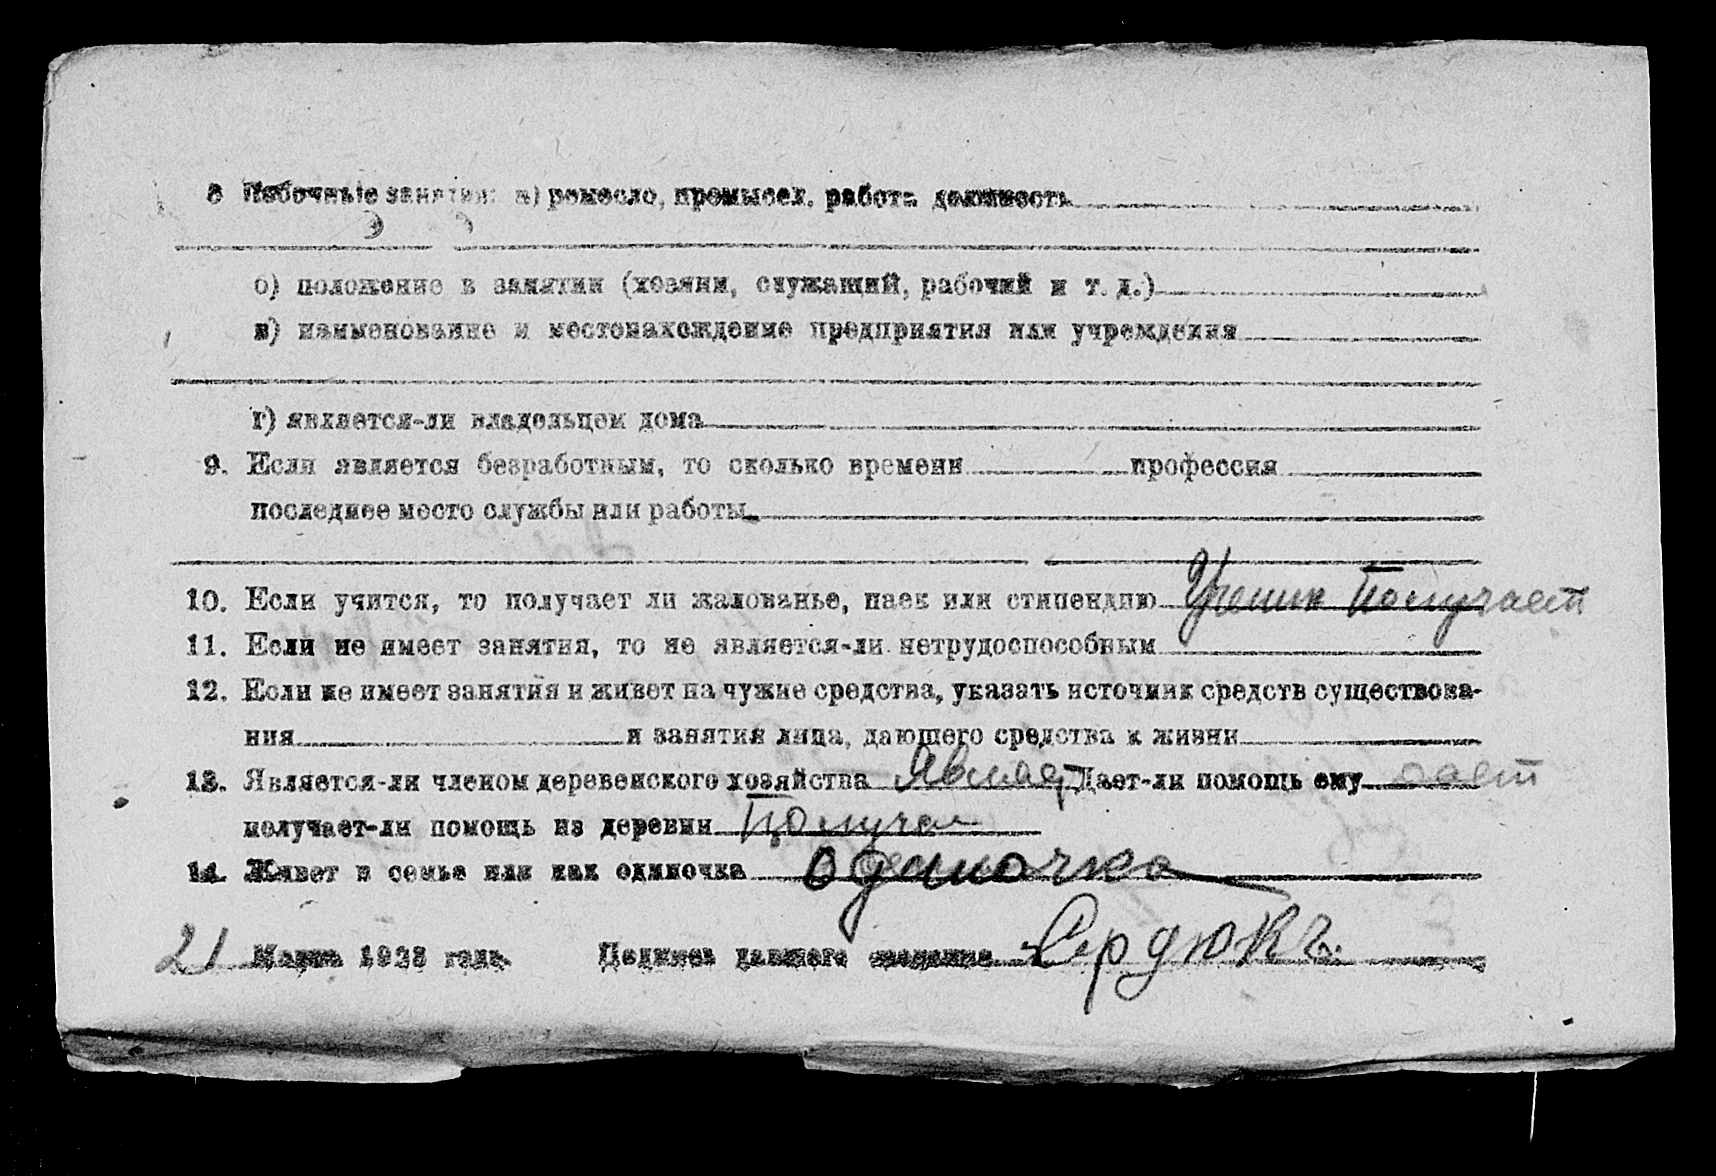 8 Побочные занятия: а) ремесло, промысел, работа должность
б) положение в занятии (хозяин, служащий, рабочий и т. д.)
в) наименование и местонахождение предприятия или учреждения
г) является-ли владельцем дома
9. Если является безработным, то сколько времени профессия
последнее место службы или работы
10. Если учится, то получает ли жалованье, паек или стипендию Ученик Получает
11. Если не имеет занятия, то не является-ли нетрудоспособным
12. Если не имеет занятия и живет на чужие средства, указать источник средств существова-
ния и занятия лица, дающего средства к жизни
13. Является-ли членом деревенского хозяйства Являет Дает-ли помощь ему дает
получает-ли помощь из деревни Получал
14. Живет в семье или как одиночка одиночка
21 Марта 1923 года. Подпись давшего сведение Сердюкъ